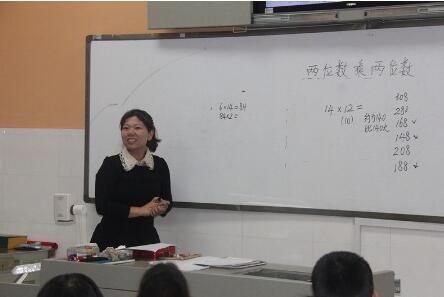 两位数乘两位数
6×14=84
84×2=
14×12=
(10)
约等140
比140大
108
282
168 ✓
148 ✓
208
188 ✓